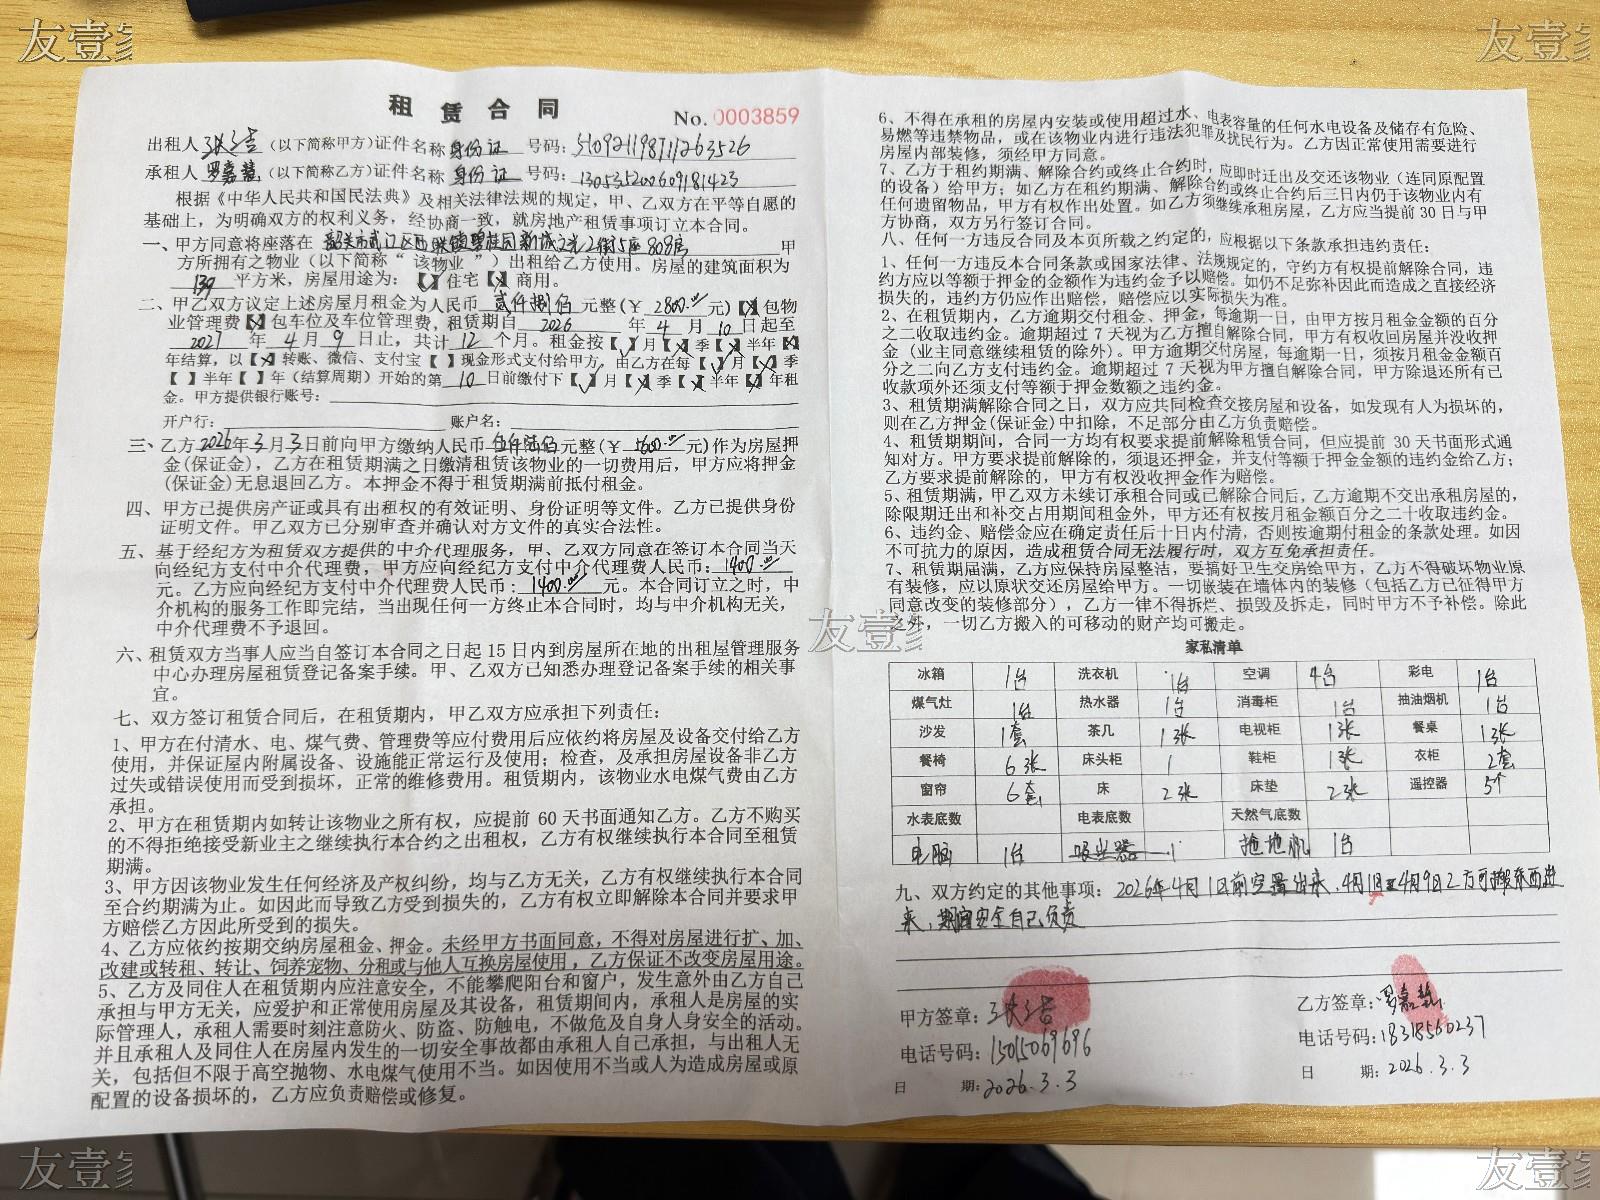 友壹家
友壹家
租赁合同
No. 0003859
出租人 (以下简称甲方)证件名称 身份证 号码: 510921198711263526
承租人 罗嘉慧 (以下简称乙方)证件名称 身份证 号码: 130535200609181423
根据《中华人民共和国民法典》及相关法律法规的规定,甲、乙双方在平等自愿的
基础上,为明确双方的权利义务,经协商一致,就房地产租赁事项订立本合同。
一、甲方同意将座落在 韶关市武江区西联镇碧桂园新城之光2街5座808房 甲
方所拥有之物业(以下简称“该物业”)出租给乙方使用。房屋的建筑面积为
139 平方米,房屋用途为:【✓】住宅【×】商用。
二、甲乙双方议定上述房屋月租金为人民币 贰仟捌佰 元整(¥ 2800.00 元)【】包物
业管理费【】包车位及车位管理费,租赁期自 2026 年 4 月 10 日起至
2027 年 4 月 9 日止,共计 12 个月。租金按【✓】月【×】季【×】半年【×】
年结算,以【】转账、微信、支付宝【】现金形式支付给甲方,由乙方在每【✓】月【×】季
【】半年【】年(结算周期)开始的第 10 日前缴付下【✓】月【×】季【×】半年【×】年租
金。甲方提供银行账号:
开户行: 账户名:
三、乙方 2026 年 3 月 3 日前向甲方缴纳人民币 元整(¥ 元)作为房屋押
金(保证金),乙方在租赁期满之日缴清租赁该物业的一切费用后,甲方应将押金
(保证金)无息退回乙方。本押金不得于租赁期满前抵付租金。
四、甲方已提供房产证或具有出租权的有效证明、身份证明等文件。乙方已提供身份
证明文件。甲乙双方已分别审查并确认对方文件的真实合法性。
五、基于经纪方为租赁双方提供的中介代理服务,甲、乙双方同意在签订本合同当天
向经纪方支付中介代理费,甲方应向经纪方支付中介代理费人民币: 1400.00
元。乙方应向经纪方支付中介代理费人民币: 1400.00 元。本合同订立之时,中
介机构的服务工作即完结,当出现任何一方终止本合同时,均与中介机构无关,
中介代理费不予退回。
六、租赁双方当事人应当自签订本合同之日起 15 日内到房屋所在地的出租屋管理服务
中心办理房屋租赁登记备案手续。甲、乙双方已知悉办理登记备案手续的相关事
宜。
七、双方签订租赁合同后,在租赁期内,甲乙双方应承担下列责任:
1、甲方在付清水、电、煤气费、管理费等应付费用后应依约将房屋及设备交付给乙方
使用,并保证屋内附属设备、设施能正常运行及使用;检查,及承担房屋设备非乙方
过失或错误使用而受到损坏,正常的维修费用。租赁期内,该物业水电煤气费由乙方
承担。
2、甲方在租赁期内如转让该物业之所有权,应提前 60 天书面通知乙方。乙方不购买
的不得拒绝接受新业主之继续执行本合约之出租权,乙方有权继续执行本合同至租赁
期满。
3、甲方因该物业发生任何经济及产权纠纷,均与乙方无关,乙方有权继续执行本合同
至合约期满为止。如因此而导致乙方受到损失的,乙方有权立即解除本合同并要求甲
方赔偿乙方因此所受到的损失。
4、乙方应依约按期交纳房屋租金、押金。未经甲方书面同意,不得对房屋进行扩、加、
改建或转租、转让、饲养宠物、分租或与他人互换房屋使用,乙方保证不改变房屋用途。
5、乙方及同住人在租赁期内应注意安全,不能攀爬阳台和窗户,发生意外由乙方自己
承担与甲方无关,应爱护和正常使用房屋及其设备,租赁期间内,承租人是房屋的实
际管理人,承租人需要时刻注意防火、防盗、防触电,不做危及自身人身安全的活动。
并且承租人及同住人在房屋内发生的一切安全事故都由承租人自己承担,与出租人无
关,包括但不限于高空抛物、水电煤气使用不当。如因使用不当或人为造成房屋或原
配置的设备损坏的,乙方应负责赔偿或修复。
6、不得在承租的房屋内安装或使用超过水、电表容量的任何水电设备及储存有危险、
易燃等违禁物品,或在该物业内进行违法犯罪及扰民行为。乙方因正常使用需要进行
房屋内部装修,须经甲方同意。
7、乙方于租约期满、解除合约或终止合约时,应即时迁出及交还该物业(连同原配置
的设备)给甲方;如乙方在租约期满、解除合约或终止合约后三日内仍于该物业内有
任何遗留物品,甲方有权作出处置。如乙方须继续承租房屋,乙方应当提前 30 日与甲
方协商,双方另行签订合同。
八、任何一方违反合同及本页所载之约定的,应根据以下条款承担违约责任:
1、任何一方违反本合同条款或国家法律、法规规定的,守约方有权提前解除合同,违
约方应以等额于押金的金额作为违约金予以赔偿。如仍不足弥补因此而造成之直接经济
损失的,违约方仍应作出赔偿,赔偿应以实际损失为准。
2、在租赁期内,乙方逾期交付租金、押金,每逾期一日,由甲方按月租金金额的百分
之二收取违约金。逾期超过 7 天视为乙方擅自解除合同,甲方有权收回房屋并没收押
金(业主同意继续租赁的除外)。甲方逾期交付房屋,每逾期一日,须按月租金金额百
分之二向乙方支付违约金。逾期超过 7 天视为甲方擅自解除合同,甲方除退还所有已
收款项外还须支付等额于押金数额之违约金。
3、租赁期满解除合同之日,双方应共同检查交接房屋和设备,如发现有人为损坏的,
则在乙方押金(保证金)中扣除,不足部分由乙方负责赔偿。
4、租赁期期间,合同一方均有权要求提前解除租赁合同,但应提前 30 天书面形式通
知对方。甲方要求提前解除的,须退还押金,并支付等额于押金金额的违约金给乙方;
乙方要求提前解除的,甲方有权没收押金作为赔偿。
5、租赁期满,甲乙双方未续订承租合同或已解除合同后,乙方逾期不交出承租房屋的,
除限期迁出和补交占用期间租金外,甲方还有权按月租金额百分之二十收取违约金。
6、违约金、赔偿金应在确定责任后十日内付清,否则按逾期付租金的条款处理。如因
不可抗力的原因,造成租赁合同无法履行时,双方互免承担责任。
7、租赁期届满,乙方应保持房屋整洁,要搞好卫生交房给甲方,乙方不得破坏物业原
有装修,应以原状交还房屋给甲方。一切嵌装在墙体内的装修(包括乙方已征得甲方
同意改变的装修部分),乙方一律不得拆烂、损毁及拆走,同时甲方不予补偿。除此
之外,一切乙方搬入的可移动的财产均可搬走。
友壹家
家私清单
冰箱 1台 洗衣机 1台 空调 4台 彩电 1台
煤气灶 1台 热水器 1台 消毒柜 1台 抽油烟机 1台
沙发 1套 茶几 1张 电视柜 1张 餐桌 1张
餐椅 6张 床头柜 1 鞋柜 1张 衣柜 2套
窗帘 6套 床 2张 床垫 2张 遥控器 5个
水表底数 电表底数 天然气底数
电脑 1台 吸尘器 1 拖地机 1台
九、双方约定的其他事项: 2026年4月1日前空置出来,4月1日至4月9日乙方可搬东西进
来,期间安全自己负责
甲方签章:
乙方签章: 罗嘉慧
电话号码: 15015069696
电话号码: 18318560237
日 期: 2026.3.3
日 期: 2026.3.3
友壹家
友壹家